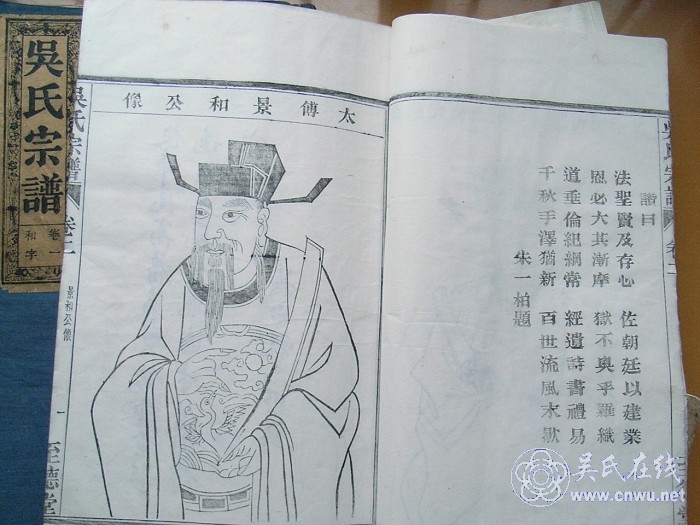 吳氏宗譜
卷一
和字
譜曰
法聖賢及存心 佐朝廷以建業
恩必大其漸摩 獄不奥乎羅織
道垂倫紀綱常 經遺詩書禮易
千秋手澤猶新 百世流風末歇
朱一柏題
太傅景和公像
吳氏宗譜
卷二
景和公像
一
至德堂
吴氏在线
www.cnwu.net